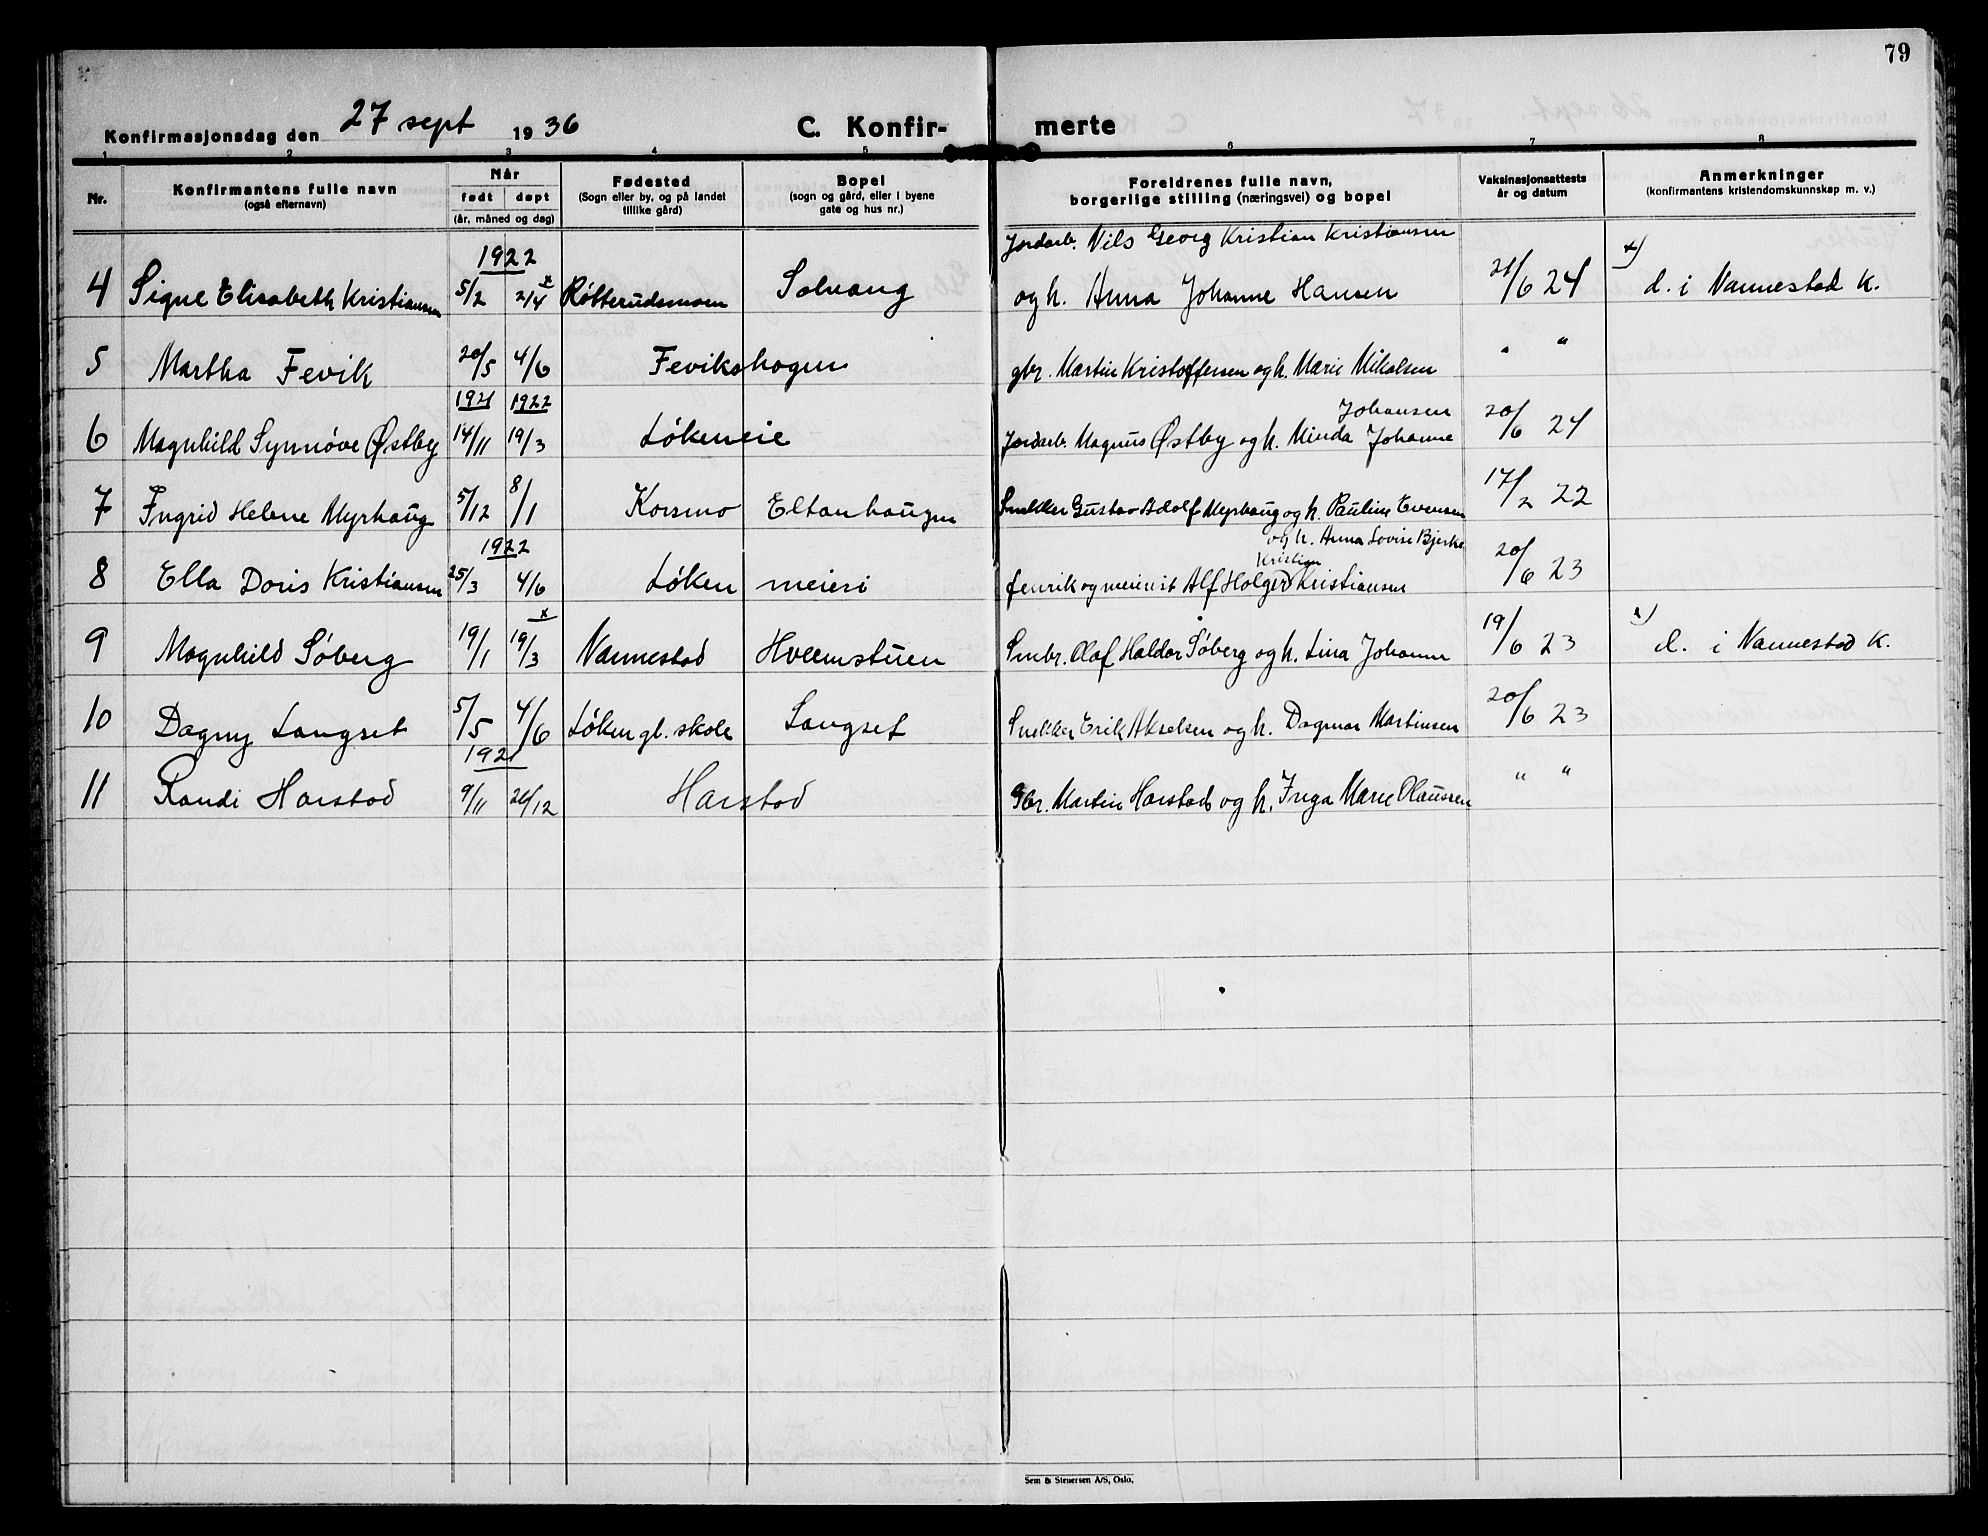 79
Konfirmasjonsdag den 27 sept 1936 C. Konfir- merte
1 2 3 4 5 6 7 8
Nr. Konfirmantens fulle navn (også efternavn) Når født døpt (år, måned og dag) Fødested (Sogn eller by, og på landet tillike gård) Bopel (sogn og gård, eller i byene gate og hus nr.) Foreldrenes fulle navn, borgerlige stilling (næringsvei) og bopel Vaksinasjonsattests år og datum Anmerkninger (konfirmantens kristendomskunnskap m. v.)
1922 Jordarb. Nils Georg Kristian Kristiansen
4 Signe Elisabeth Kristiansen 5/2 2/4 x Røtterudsmoen Solvang og h. Anna Johanne Hansen 21/6 24 x) d. i Nannestad K.
5 Martha Fevik 20/5 4/6 Fevikshagen gbr. Martin Kristoffersen og h. Marie Nikolsen " "
1921 1922 Johansen
6 Magnhild Synnøve Østby 14/11 19/3 Løkeneie Jordarb. Magnus Østby og h. Minda Johanne 20/6 24
7 Ingrid Helene Myrhaug 5/12 8/1 Korsmo Eltonhaugen Snekker Gustav Adolf Myrhaug og h. Pauline Evensen 17/2 22
1922 og h. Anna Lovise Bjerke
Kristian
8 Ella Doris Kristiansen 25/3 4/6 Løken meieri fenrik og meierist Alf Holger Kristiansen 20/6 23
9 Magnhild Søberg 19/1 19/3 x Nannestad Hveemstuen Smbr. Olaf Haldor Søberg og h. Lina Johanne 19/6 23 x) d. i Nannestad K.
10 Dagny Langset 5/5 4/6 Løken gl. skole Langset Snekker Erik Akselsen og h. Dagmar Martinsen 20/6 23
1921
11 Randi Harstad 9/11 26/12 Harstad Gbr. Martin Harstad og h. Inga Marie Olaussen " "
Sem & Stenersen A/S, Oslo.